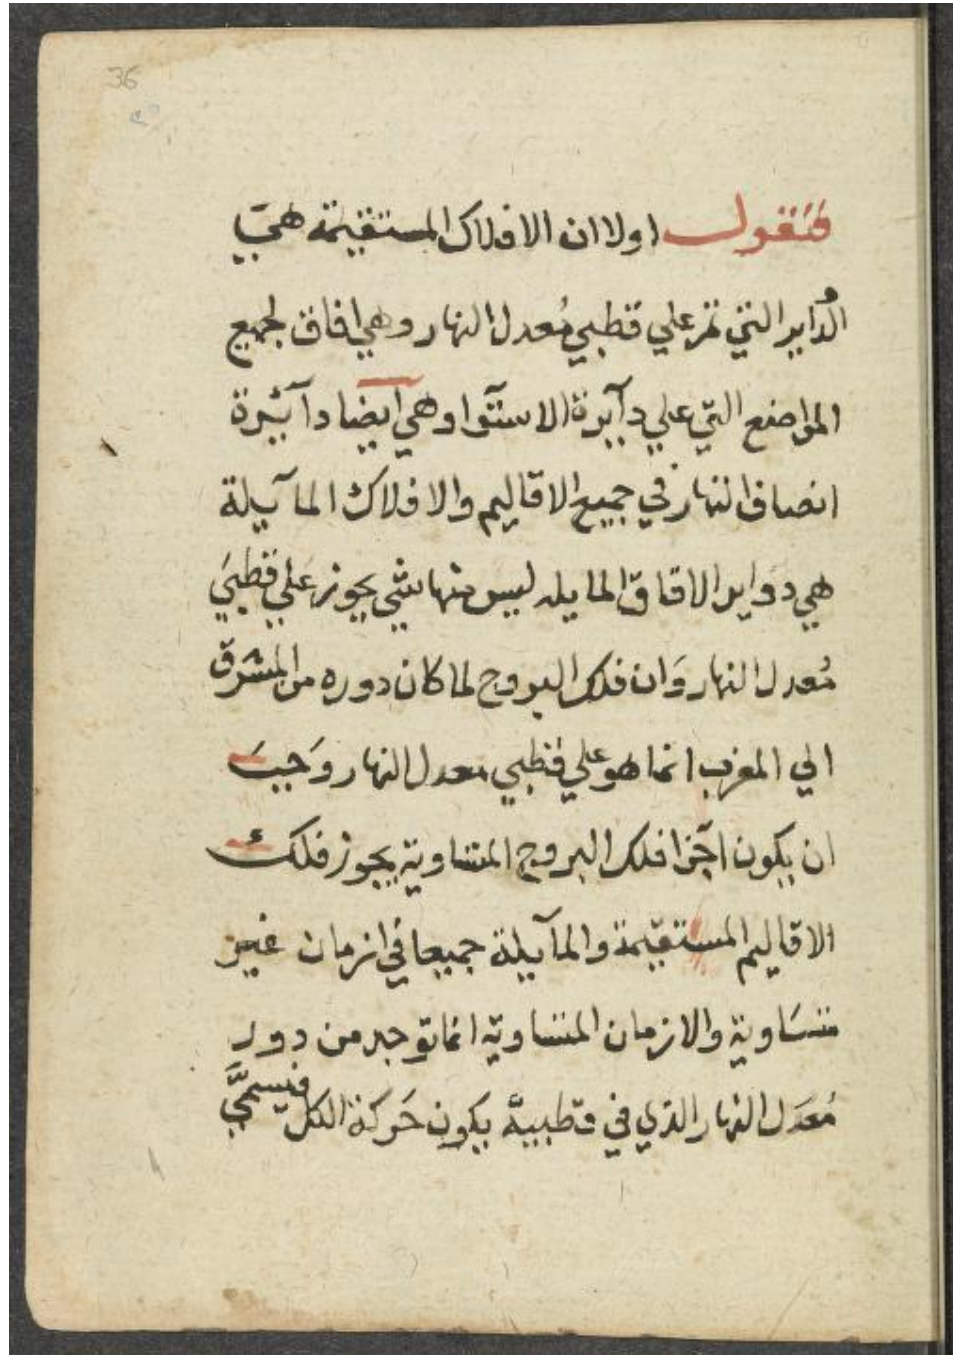 36
فَنَقول اولا ان الافلاك المستقيمة هي
الدُوايد التي تمر علي قطبي مُعدل النهار وهي افاق لجميع
المواضع التي علي دآيرة الاستوآ وهي ايضا دآئيرة
انصاف النهار في جميع الاقاليم والافلاك المآيلة
هي دوَاير الافاق المايله ليس منها شي يجوز علي قطبيَ
مُعدل النهار وَان فلك البروج لما كان دوره من المشرق
الي المغرب انما هو علي قطبي معدل النهار وَجبَ
ان يكون اجزآ فلك البروج المتساوية يجوز فلك
الاقاليم المستقيمة والمآيلة جميعا في ازمان غير
متسَاوية والازمان المتساوية انما توجد من دور
مُعَدل النهار الذي في قطبيهَّ يكون حَركة الكل فيسمَّي